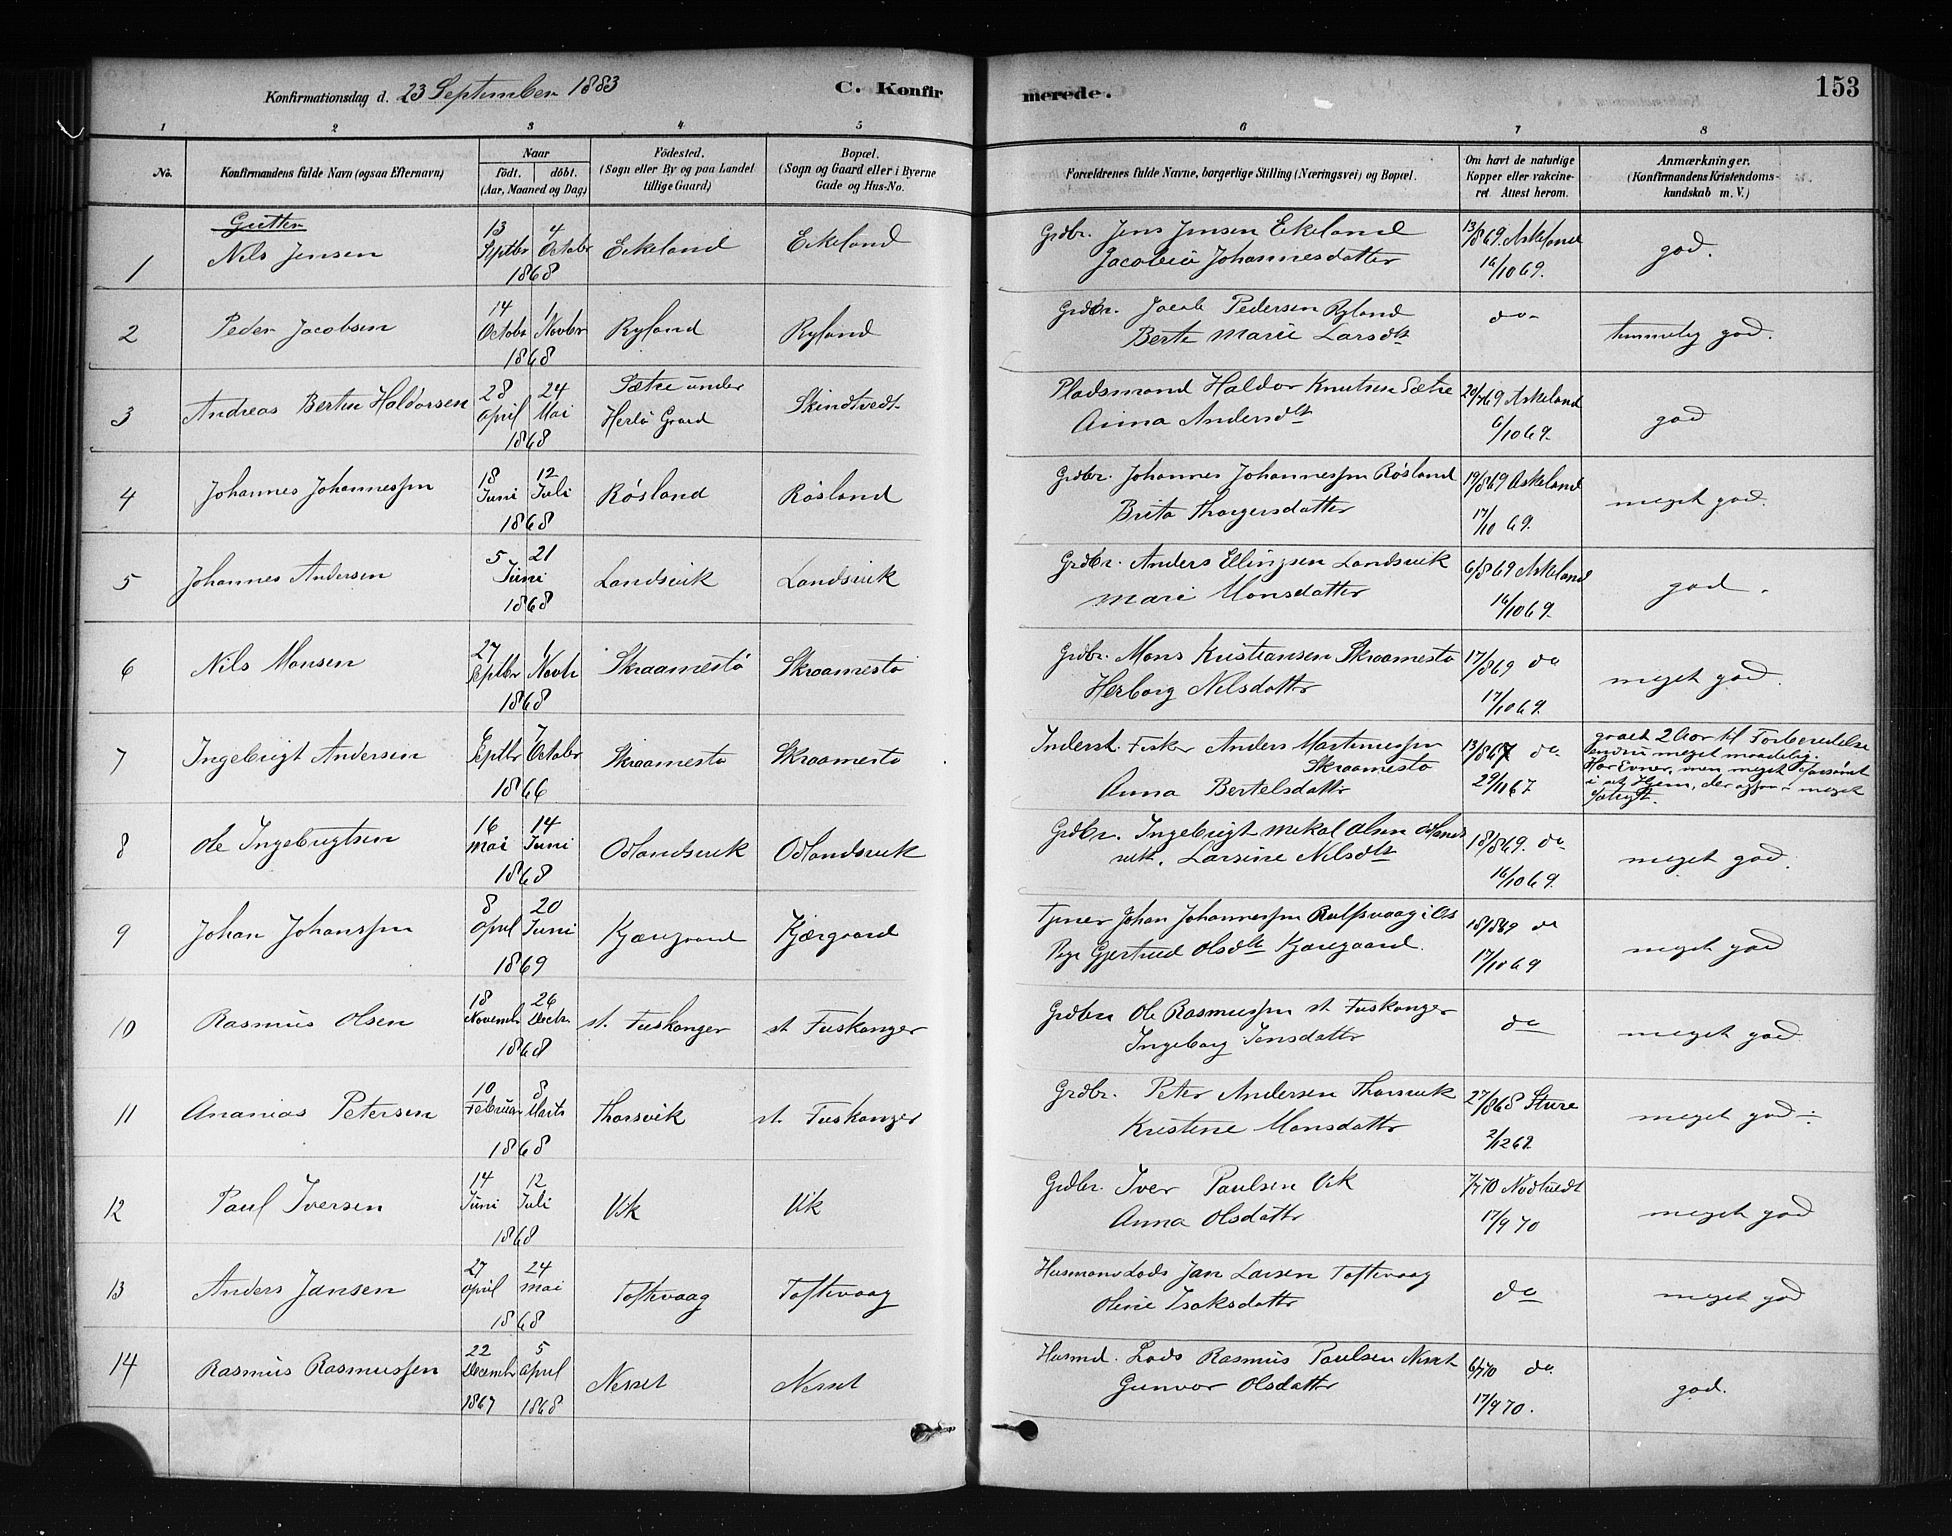 Konfirmationsdag d. 23 September 1883
C. Konfirmerede.
153
1 2 3 4 5 6 7 8
No.
Konfirmandens fulde Navn (ogsaa Efternavn)
Naar
født. døbt.
(Aar, Maaned og Dag)
Fødested.
(Sogn eller By og paa Landet
tillige Gaard)
Bopæl.
(Sogn og Gaard eller i Byerne
Gade og Hus-No.
Forældrenes fulde Navne, borgerlige Stilling (Næringsvei) og Bopæl.
Om havt de naturlige
Kopper eller vakcine-
ret Attest herom.
Anmærkninger.
(Konfirmandens Kristendoms-
kundskab m. V.)
Gutter
1 Nils Jensen 13 Septbr 4 Octobr 1868 Eikeland Eikeland Grdbr. Jens Jensen Eikeland 13/8 69. Askeland god.
Jacobia Johannesdatter 16/10 69.
2 Peder Jacobsen 14 Octobr 1 Novbr 1868 Ryland Ryland Grdbr. Jacob Pedersen Ryland do temmelig god.
Berte Marie Larsdtr
3 Andreas Bertin Haldorsen 28 April 24 Mai 1868 Sætre under Herlø Gaard Skindtvedt Pladsmand Haldor Knutsen Sætre 20/7 69 Askeland god
Anna Andersdtr 6/10 69.
4 Johannes Johannessen 18 Juni 12 Juli 1868 Røsland Røsland Grdbr. Johannes Johannessen Røsland 19/8 69 Askeland meget god.
Brita Thorgersdatter 17/10 69.
5 Johannes Andersen 5 21 Juni 1868 Landsvik Landsvik Grdbr. Anders Ellingsen Landsvik 6/8 69 Askeland god.
Mari Monsdatter 16/10 69.
6 Nils Monsen 27 Septbr 1 Novbr 1868 Skraamestø Skraamestø Grdbr. Mons Kristiansen Skraamestø 17/8 69 do meget god.
Herborg Nilsdattr 17/10 69.
7 Ingebrigt Andersen Septbr 7 Octobr 1866 Skraamestø Skraamestø Inderst. Fisker Anders Martinussen Skraamestø 13/8 67 do
Anna Bertelsdattr 29/11 67
gaaet 2 Aar til Forberedelse
endnu meget maadelig.
Har Evner, men meget forsømt
i et Hjem, der ogsaa meget
8 Ole Ingebrigtsen 16 Mai 14 Juni 1868 Odlandsvik Odlandsvik Grdbr. Ingebrigt Mikal Olsen Odlands 18/8 69. do meget god.
vik. Larsine Nilsdtr 16/10 69.
9 Johan Johanssen 8 April 20 Juni 1869 Kjærgaard Kjærgaard Tjener Johan Johannessen Rulfsvaag i Os 18/8 69 do meget god
Pige Gjertrud Olsdtr Kjærgaard. 17/10 69
10 Rasmus Olsen 18 Novembr 26 Decbr. 1868 st. Fuskanger st Fuskanger Grdbr. Ole Rasmussen st Fuskanger do meget god
Ingeborg Jensdattr
11 Ananias Petersen 10 Februar 8 Marts 1868 Thorsvik st. Fuskanger Grdbr. Peter Andersen Thorsvik 27/8 68 Sture meget god
Kristine Monsdattr 2/12 68.
12 Paul Iversen 14 Juni 12 Juli 1868 Vik Vik Grdbr. Iver Paulsen Vik 7/7 70 Nødtvedt meget god
Anna Olsdattr 17/9 70
13 Anders Jansen 27 April 24 Mai 1868 Toftevaag Toftevaag Husmand Lods Jan Larsen Toftevaag do meget god
Oline Isaksdattr
14 Rasmus Rasmussen 22 Decembr 1867 5 April 1868 Nesset Nesset Husmd. Lods Rasmus Paulsen Nesset 6/7 70 do god.
Gunvor Olsdatter 17/9 70.